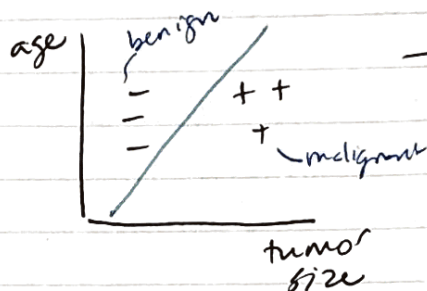 age
benign
− + +
−
− +
malignant
tumor
size